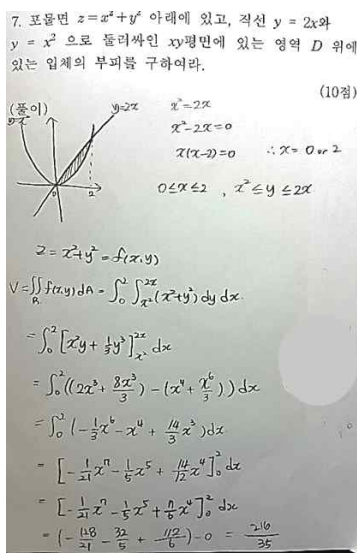 7. 포물면 z=x²+y² 아래에 있고, 직선 y = 2x와
y = x² 으로 둘러싸인 xy평면에 있는 영역 D 위에
있는 입체의 부피를 구하여라.
(10점)
(풀이)
y=2x
x²=2x
x²-2x=0
x(x-2)=0 ∴x= 0 or 2
0≤x≤2 , x²≤y≤2x
0 2
z = x²+y² = f(x,y)
V=∬_R f(x,y)dA = ∫₀² ∫_{x²}^{2x} (x²+y²) dy dx
= ∫₀² [x²y + 1/3 y³]_{x²}^{2x} dx
= ∫₀² ((2x³ + 8x³/3) - (x⁴ + x⁶/3)) dx
= ∫₀² (-1/3 x⁶ - x⁴ + 14/3 x³) dx
= [-1/21 x⁷ - 1/5 x⁵ + 14/12 x⁴]₀² dx
= [-1/21 x⁷ - 1/5 x⁵ + 7/6 x⁴]₀² dx
= (-128/21 - 32/5 + 112/6) - 0 = 216/35